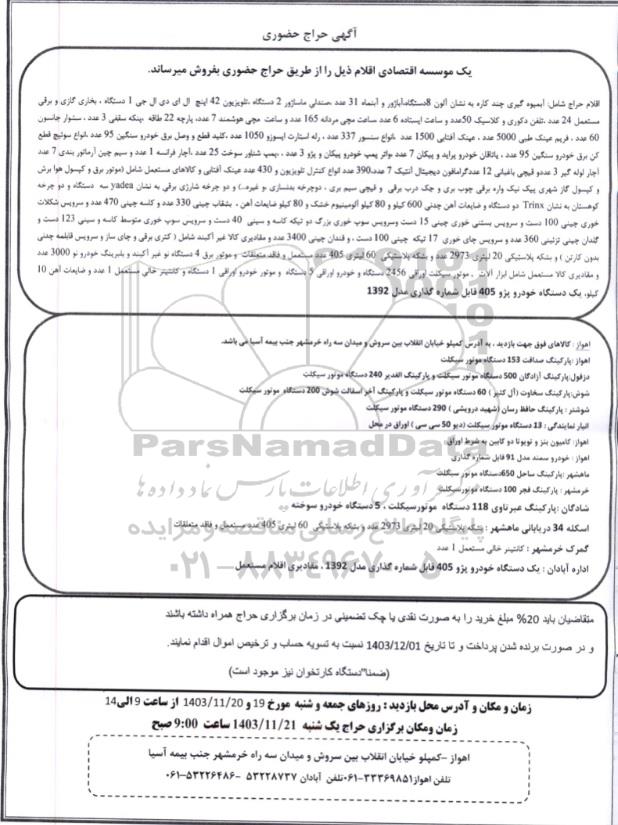 آگهی حراج حضوری
یک موسسه اقتصادی اقلام ذیل را از طریق حراج حضوری بفروش میرساند.
اقلام حراج شامل: آبمیوه گیری چند کاره به نشان آلون 8دستگاه،آباژور و آبنماء 31 عدد ،صندلی ماساژور 2 دستگاه ،تلویزیون 42 اینچ ال ای دی ال جی 1 دستگاه ، بخاری گازی و برقی
مستعمل 24 عدد ،تلفن دکوری و کلاسیک 50عدد و ساعت ایستاده 6 عدد ساعت مچی مردانه 165 عدد و ساعت مچی هوشمند 7 عدد، پارچه 22 طاقه ،پنکه سقفی 3 عدد ، سشوار جانسون
60 عدد ، فریم عینک طبی 5000 عدد ، عینک آفتابی 1500 عدد ،انواع سنسور 337 عدد ، رله استارت اپسوزو 1050 عدد ،کلید قطع و وصل برق خودرو سنگین 95 عدد ،انواع سوئیچ قطع
کن برق خودرو سنگین 95 عدد ، یاتاقان خودرو پراید و پیکان 7 عدد ،واتر پمپ خودرو پیکان و پژو 3 عدد ، ،پمپ شناور سوخت 25 عدد ،آچار فرانسه 1 عدد و سیم چین آرماتور بندی 7 عدد
آچار لوله گیر 3 عددو قیچی باغبانی 12 عدد،گرامافون دیجیتال آنتیک 7 عدد،390 عدد انواع کنترل تلویزیون و 430 عدد عینک آفتابی و کالاهای مستعمل شامل (موتور برق و کپسول هوا برش
و کپسول گاز شهری پیک نیک واره برقی چوب بری و جک درب برقی و قیچی سیم بری ، دوچرخه بدنسازی ،و غیره..) و دو چرخه شارژی برقی به نشان yadea سه دستگاه و دو چرخه
کوهستان به نشان Trinx دو دستگاه و ضایعات آهن چدنی 600 کیلو و 80 کیلو آلومینیوم خشک و 80 کیلو ضایعات آهن ، بشقاب چینی 330 عدد و کاسه چینی 470 عدد و سرویس شکلات
خوری چینی 100 دست و سرویس بستنی خوری چینی 15 دست وسرویس سوپ خوری بزرگ دو تیکه کاسه و سینی 40 دست و سرویس سوپ خوری متوسط کاسه و سینی 123 دست و
گلدان چینی تزئینی 360 عدد و سرویس چای خوری 17 تیکه چینی 100 دست ، و قندان چینی 3400 عدد و مقادیری کالا غیر آکبند شامل ( کتری برقی و چای ساز و سرویس قابلمه چدنی
بدون کارتن ) و بشکه پلاستیکی 20 لیتری 2973 عدد و بشکه پلاستیکی 60 لیتری 405 عدد مستعمل و فاقد متعلقات و موتور برق 4 دستگاه نو غیر آکبند و بلبرینگ خودرو نو 3000 عدد
و مقادیری کالا مستعمل شامل ابزار آلات ، موتور سیکلت اوراقی 2456 دستگاه و خودرو اوراقی 5 دستگاه و موتور خودرو اوراقی 1 دستگاه و کانتینر خالی مستعمل 1 عدد و ضایعات آهن 10
کیلو، یک دستگاه خودرو پژو 405 قابل شماره گذاری مدل 1392
اهواز : کالاهای فوق جهت بازدید ، به آدرس کمپلو خیابان انقلاب بین سروش و میدان سه راه خرمشهر جنب بیمه آسیا می باشد.
اهواز:پارکینگ صداقت 153 دستگاه موتور سیکلت
دزفول:پارکینگ آزادگان 500 دستگاه موتور سیکلت و پارکینگ الغدیر 240 دستگاه موتور سیکلت
شوش:پارکینگ سخاوت (آل کثیر ) 60 دستگاه موتور سیکلت و پارکینگ آخر اسفالت شوش 200 دستگاه موتور سیکلت
شوشتر : پارکینگ حافظ رسان (شهید درویشی ) 290 دستگاه موتور سیکلت
انبار نمایندگی : 13 دستگاه موتور سیکلت (دیو 50 سی سی ) اوراق در محل
اهواز: کامیون بنز و تویوتا دو کابین به شرط اوراق
اهواز : خودرو سمند مدل 91 قابل شماره گذاری
ماهشهر :پارکینگ ساحل 650دستگاه موتور سیکلت
خرمشهر : پارکینگ فجر 100 دستگاه موتورسیکلت
شادگان: پارکینگ عبرتاوی 118 دستگاه موتورسیکلت ، 5 دستگاه خودرو سوخته
اسکله 34 دریابانی ماهشهر : بشکه پلاستیکی 20 لیتری 2973 عدد و بشکه پلاستیکی 60 لیتری 405 عدد مستعمل و فاقد متعلقات
گمرک خرمشهر : کانتینر خالی مستعمل 1 عدد
اداره آبادان : یک دستگاه خودرو پژو 405 قابل شماره گذاری مدل 1392 ، مقادیری اقلام مستعمل
ParsNamadData
گرد آوری اطلاعات پارس نماد داده ها
پایگاه اطلاع رسانی مناقصه و مزایده
۰۲۱-۸۸۳۴۹۶۷۰-۵
متقاضیان باید 20% مبلغ خرید را به صورت نقدی یا چک تضمینی در زمان برگزاری حراج همراه داشته باشند
و در صورت برنده شدن پرداخت و تا تاریخ 1403/12/01 نسبت به تسویه حساب و ترخیص اموال اقدام نمایند.
(ضمنا"دستگاه کارتخوان نیز موجود است)
زمان و مکان و آدرس محل بازدید : روزهای جمعه و شنبه مورخ 19 و 1403/11/20 از ساعت 9 الی14
زمان ومکان برگزاری حراج یک شنبه 1403/11/21 ساعت 9:00 صبح
اهواز –کمپلو خیابان انقلاب بین سروش و میدان سه راه خرمشهر جنب بیمه آسیا
تلفن اهواز۳۳۳۶۹۸۵۱-۰۶۱تلفن آبادان ۵۳۲۲۸۷۳۷ -۵۳۲۲۶۴۸۶-۰۶۱